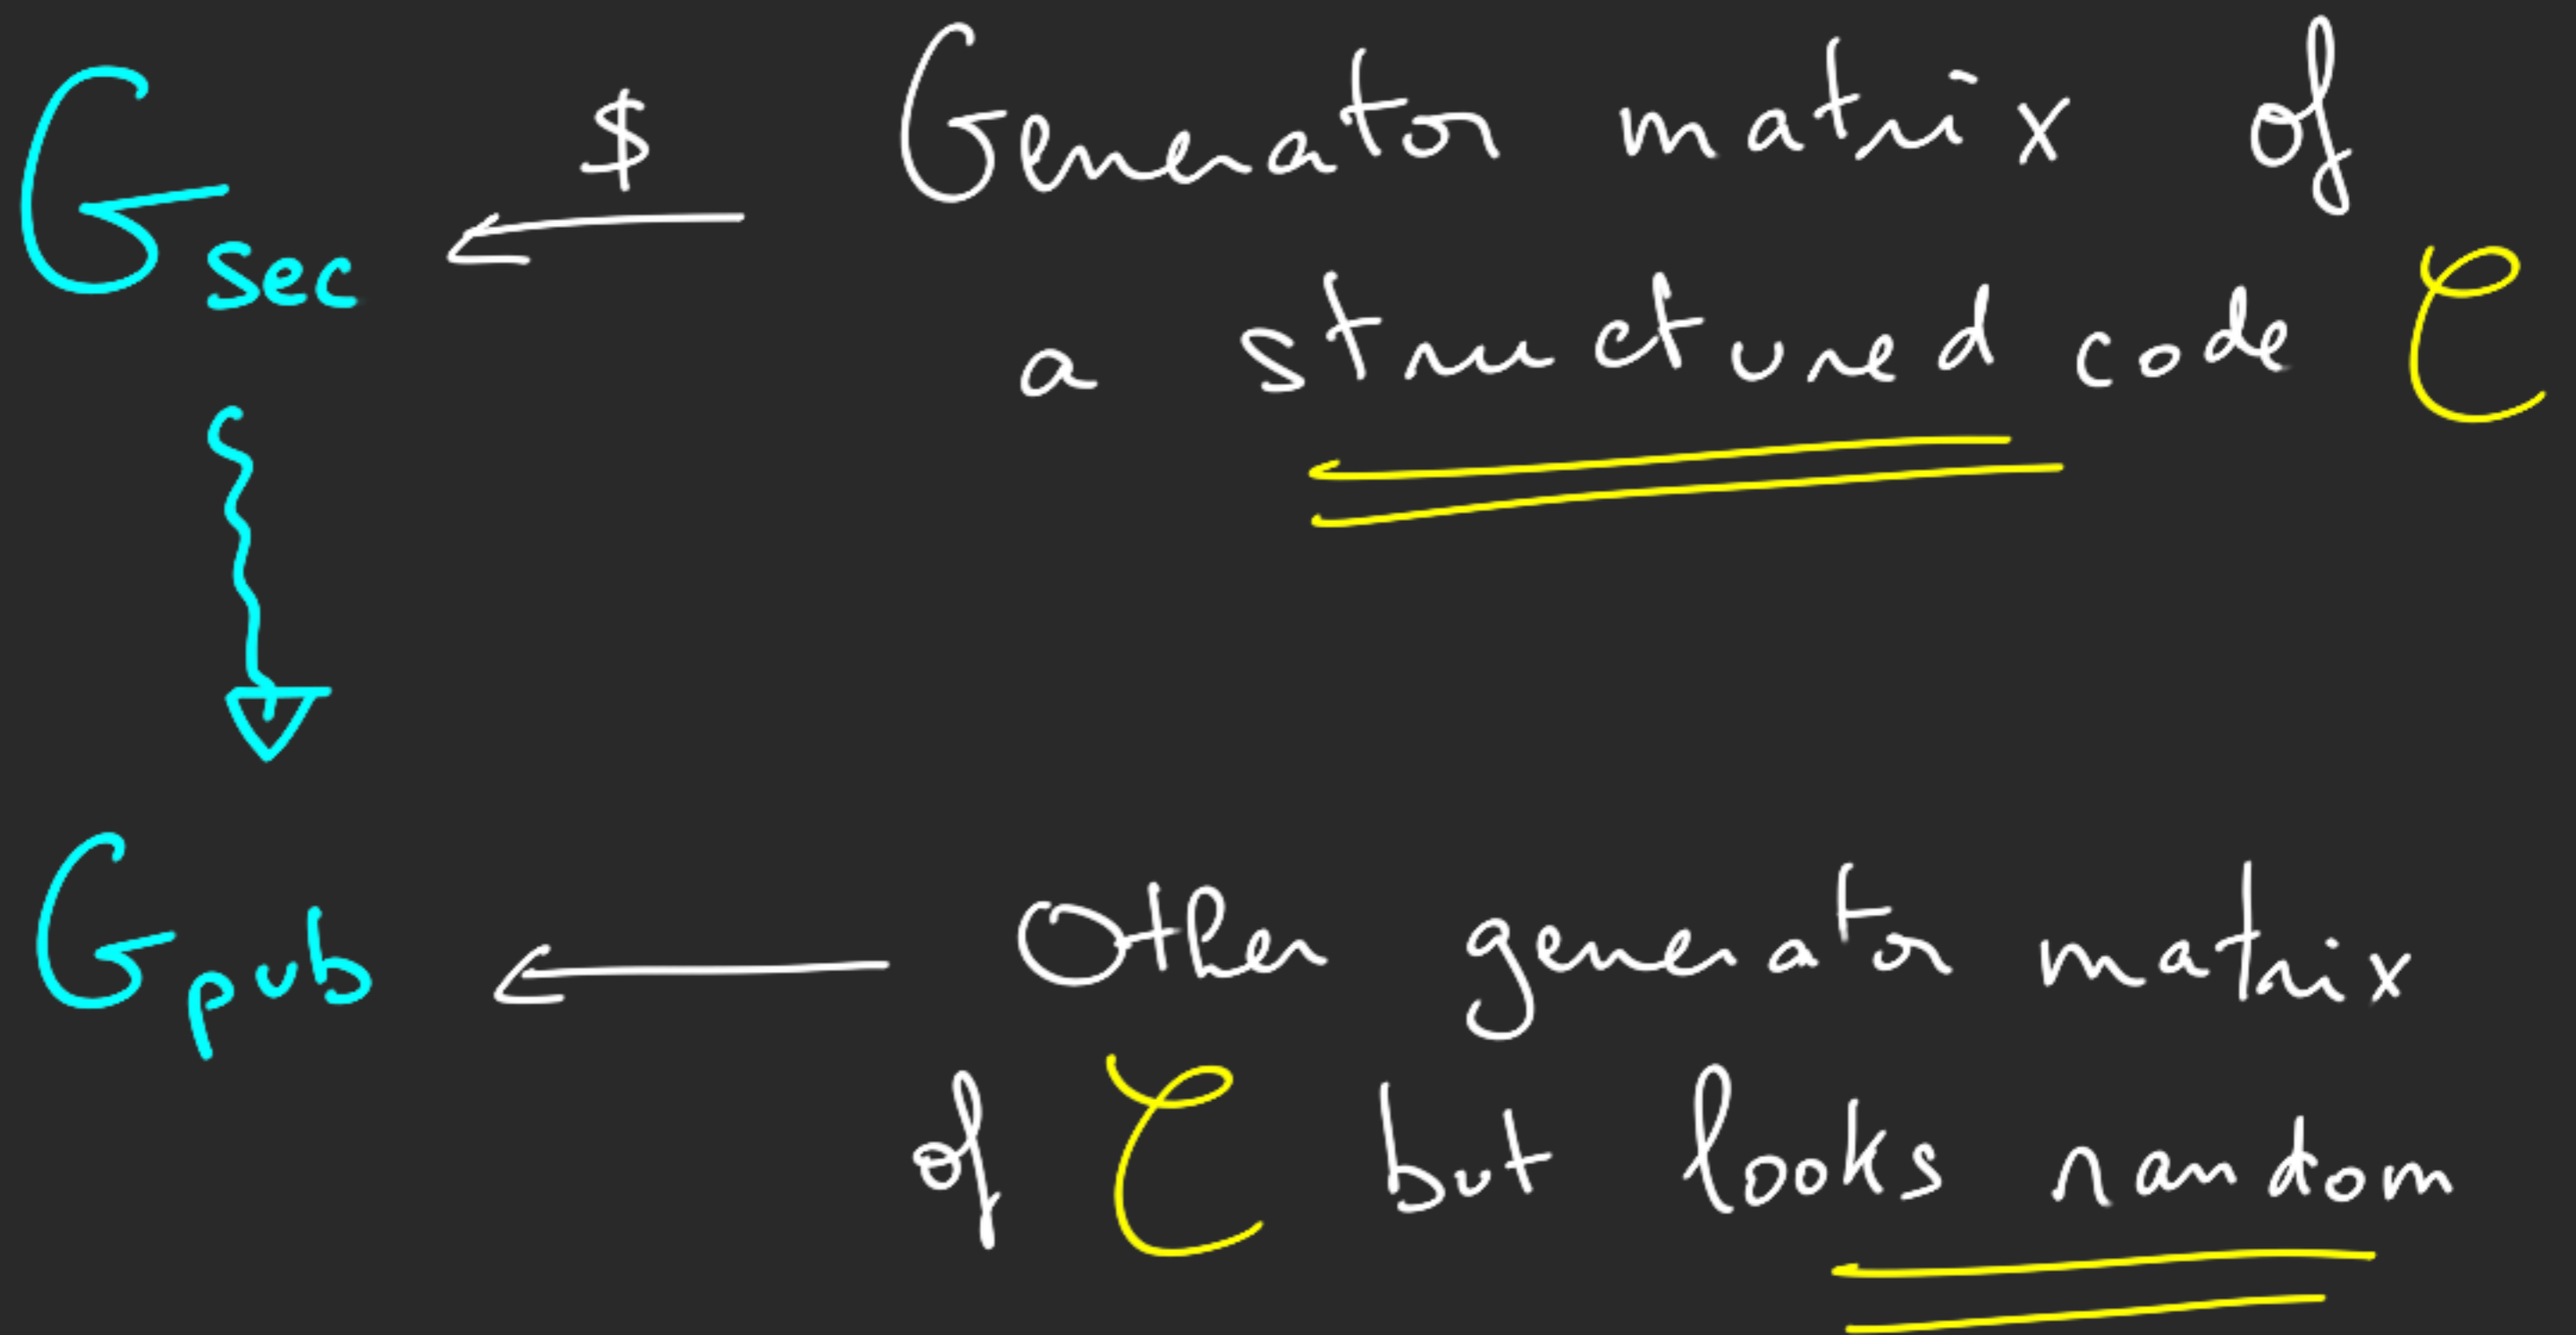 G_sec ←$ Generator matrix of
a structured code 𝒞
G_pub ← Other generator matrix
of 𝒞 but looks random